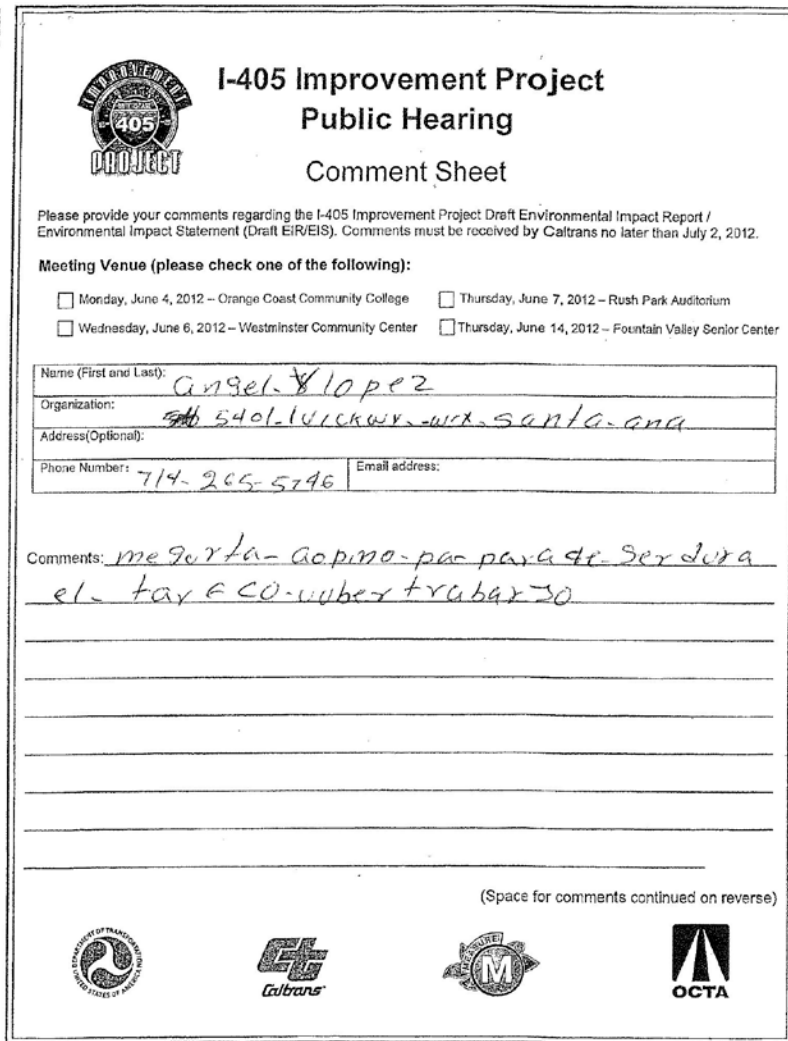 IMPROVEMENT
405
PROJECT
I-405 Improvement Project
Public Hearing
Comment Sheet
Please provide your comments regarding the I-405 Improvement Project Draft Environmental Impact Report /
Environmental Impact Statement (Draft EIR/EIS). Comments must be received by Caltrans no later than July 2, 2012.
Meeting Venue (please check one of the following):
Monday, June 4, 2012 – Orange Coast Community College
Thursday, June 7, 2012 – Rush Park Auditorium
Wednesday, June 6, 2012 – Westminster Community Center
Thursday, June 14, 2012 – Fountain Valley Senior Center
Name (First and Last): angel lopez
Organization: 5401 santa-ana
Address(Optional):
Phone Number: 714-265-5746
Email address:
Comments: me para
el-
(Space for comments continued on reverse)
DEPARTMENT OF TRANSPORTATION
UNITED STATES OF AMERICA
Caltrans
MEASURE
M
OCTA